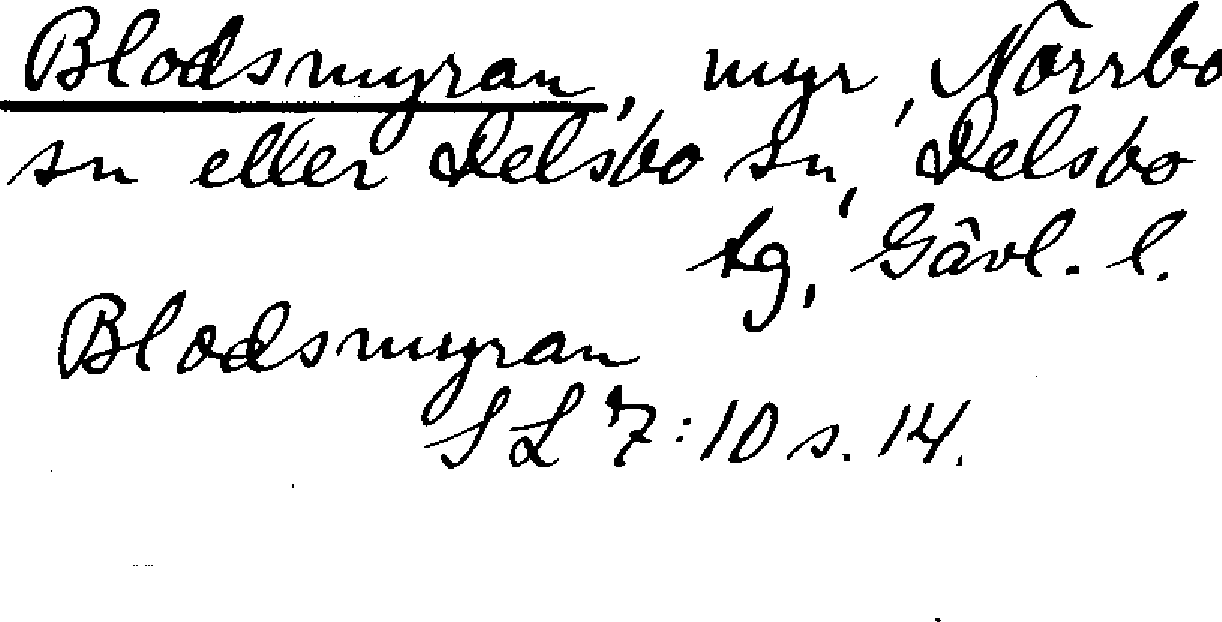 Blodsmyran, myr, Norrbo
sn eller Delsbo sn, Delsbo
tg, Gävl. l.
Blodsmyran
SL 7:10 s. 14.